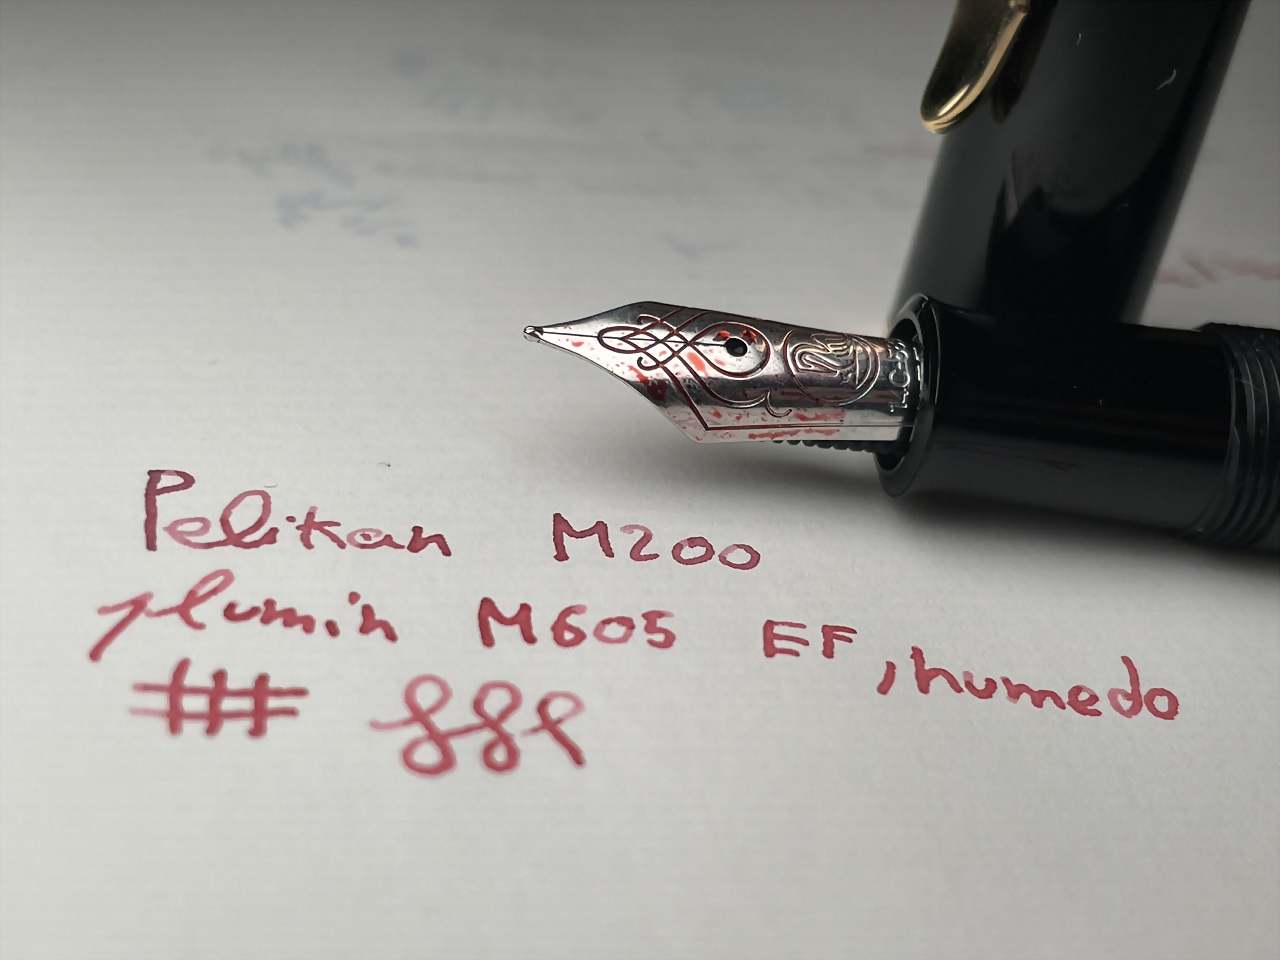 Pelikan M200
plumin M605 EF, humedo
14C-58